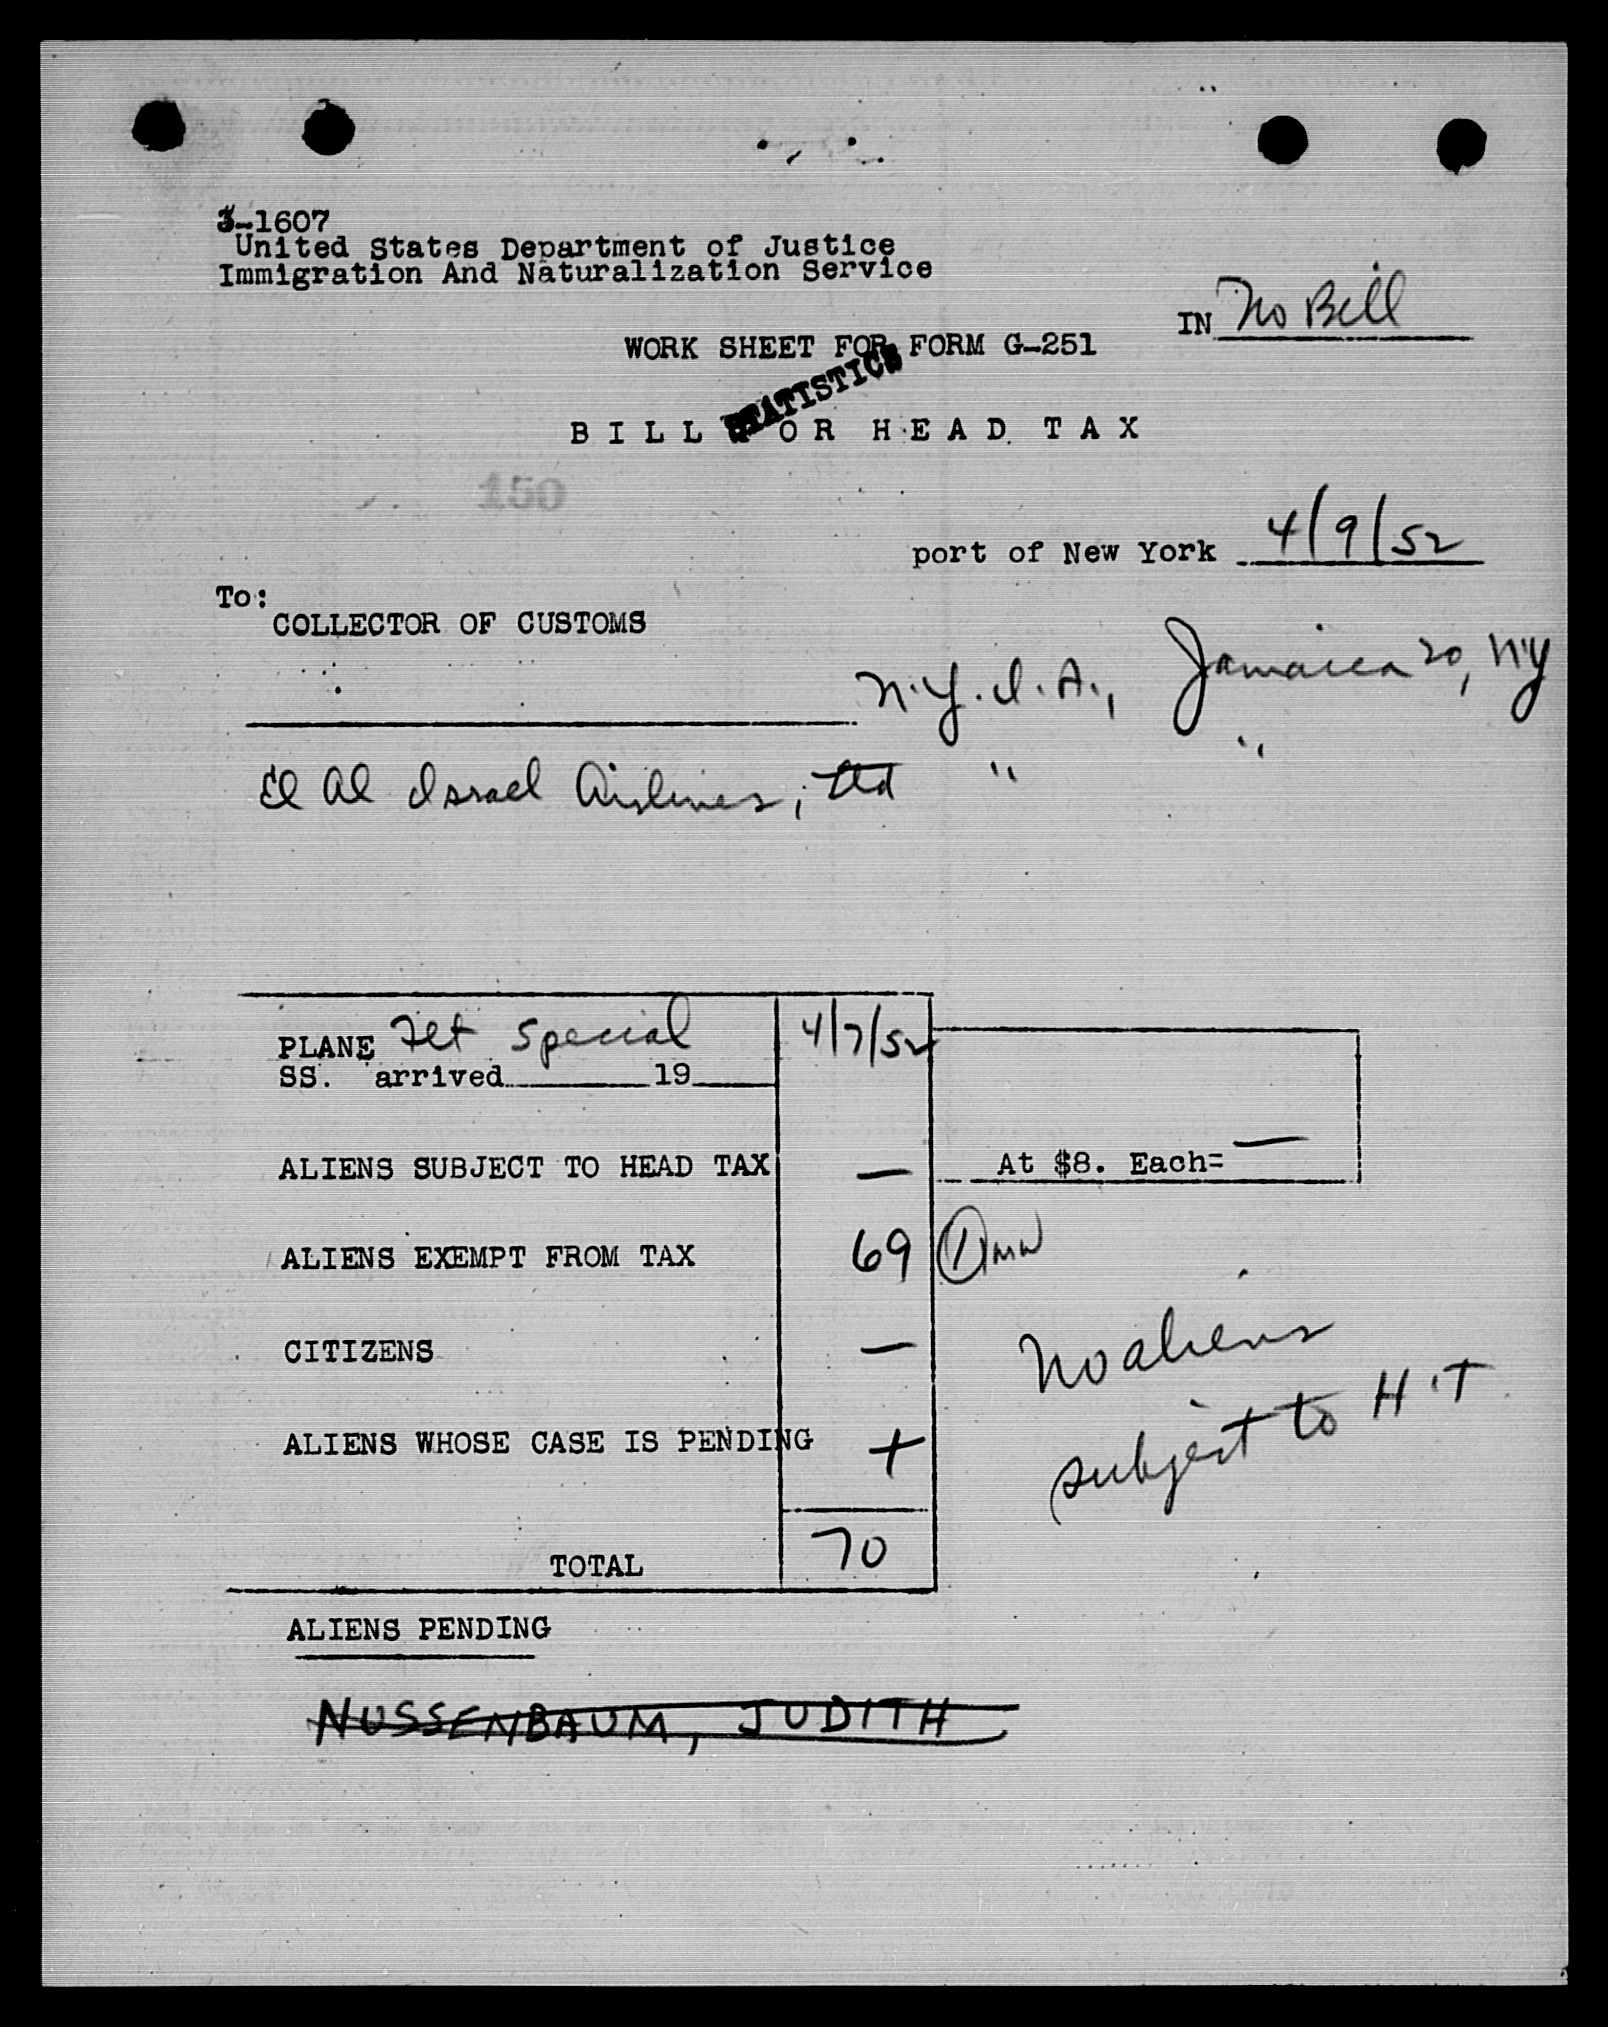 3-1607
United States Department of Justice
Immigration And Naturalization Service
IN No Bill
WORK SHEET FOR FORM G-251
STATISTICS
BILL FOR HEAD TAX
150
port of New York 4/9/52
To:
COLLECTOR OF CUSTOMS
N.Y.I.A., Jamaica 20, NY
El Al Israel Airlines, Ltd " "
PLANE Flt Special 4/7/52
SS. arrived 19
ALIENS SUBJECT TO HEAD TAX — At $8. Each= —
ALIENS EXEMPT FROM TAX 69 1 MW
CITIZENS —
No aliens
subject to H.T
ALIENS WHOSE CASE IS PENDING +
TOTAL 70
ALIENS PENDING
NUSSENBAUM, JUDITH